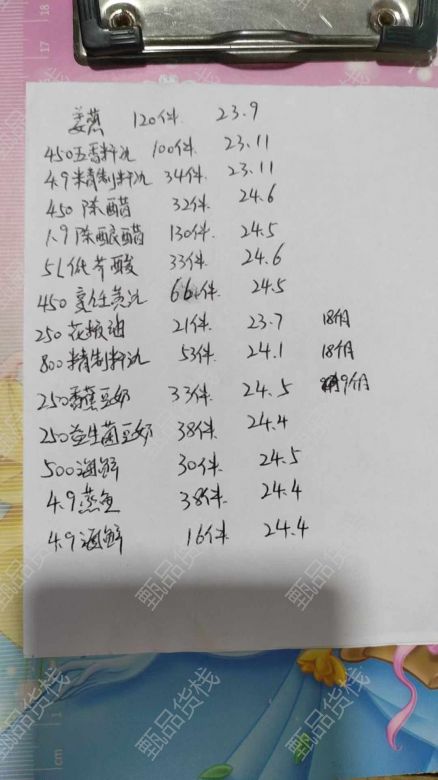 姜葱 120件 23.9
450五香料沈 100件 23.11
4.9精制料沈 34件 23.11
450陈醋 32件 24.6
1.9陈酿醋 130件 24.5
5L低芥酸 33件 24.6
450 66件 24.5
250花椒油 21件 23.7 18个月
800精制料沈 53件 24.1 18个月
250香蕉豆奶 33件 24.5 9个月
250益生菌豆奶 38件 24.4
500海鲜 30件 24.5
4.9蒸鱼 38件 24.4
4.9海鲜 16件 24.4
甄品货栈